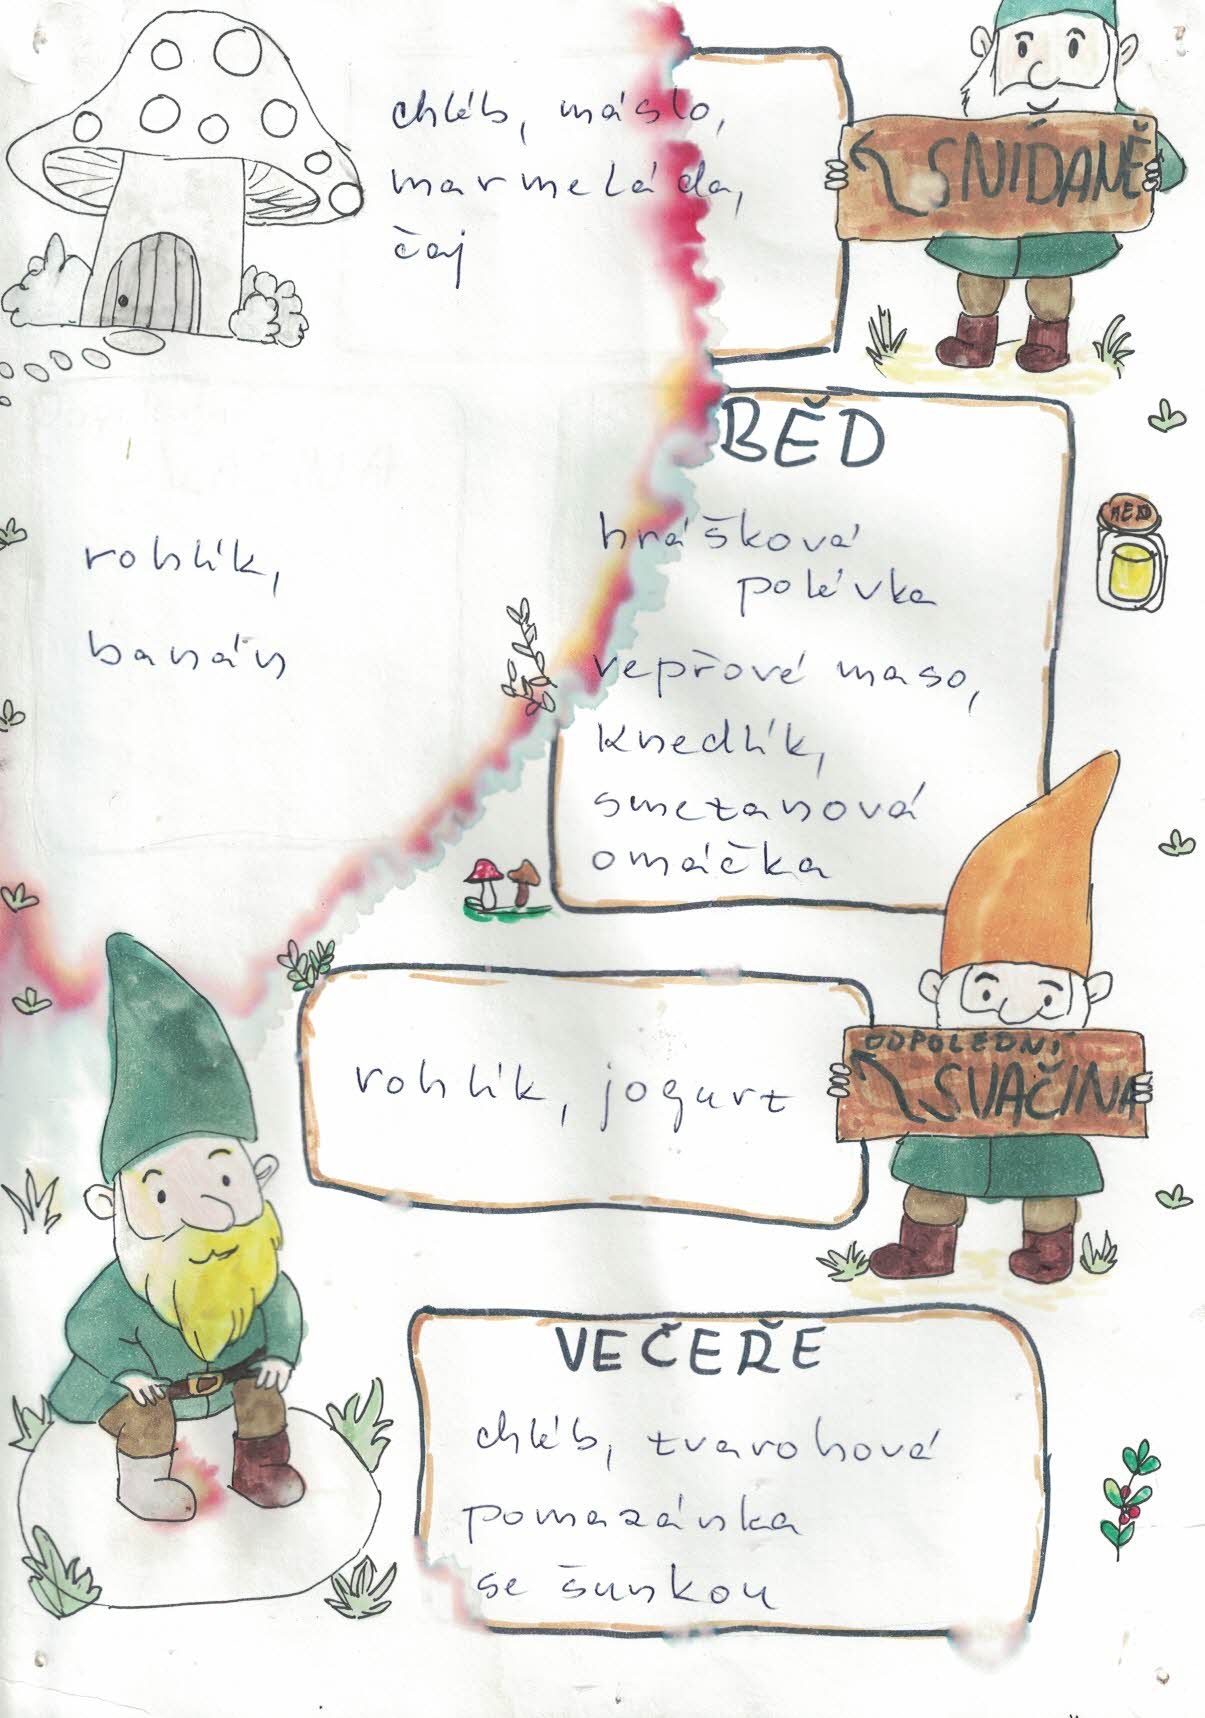 chléb, máslo,
marmeláda,
čaj
SNÍDANĚ
rohlík,
banán
BĚD
hrášková
polévka
vepřové maso,
knedlík,
smetanová
omáčka
MED
rohlík, jogurt
ODPOLEDNÍ
SVAČINA
VEČEŘE
chléb, tvarohová
pomazánka
se šunkou